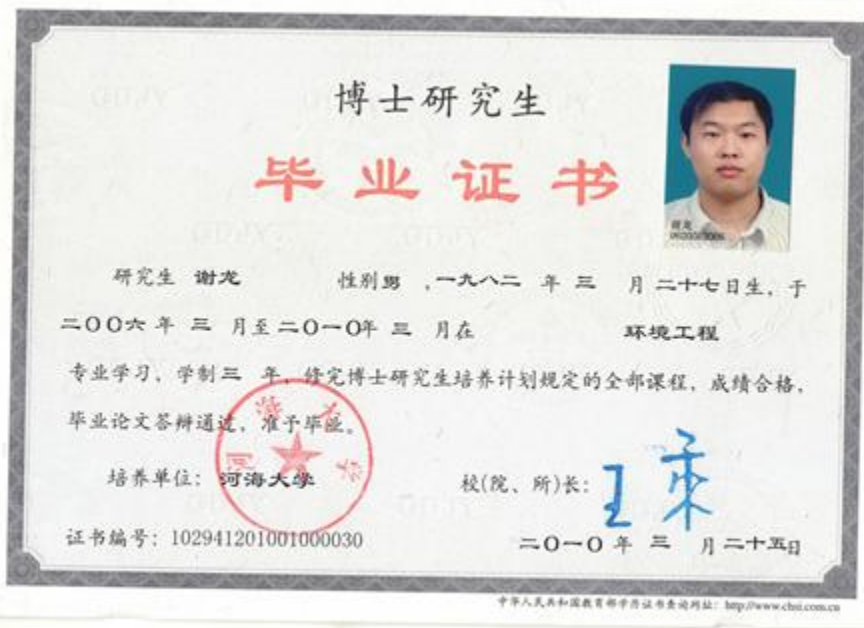 博士研究生
毕业证书
谢龙
研究生 谢龙 性别男 ,一九八二 年 三 月 二十七日生, 于
二〇〇六 年 三 月至 二〇一〇年 三 月在 环境工程
专业学习, 学制三 年, 修完博士研究生培养计划规定的全部课程, 成绩合格,
毕业论文答辩通过, 准予毕业。
河海大学
培养单位: 河海大学 校(院、所)长:
证书编号: 102941201001000030 二〇一〇 年 三 月 二十五日
中华人民共和国教育部学历证书查询网址: http://www.chsi.com.cn